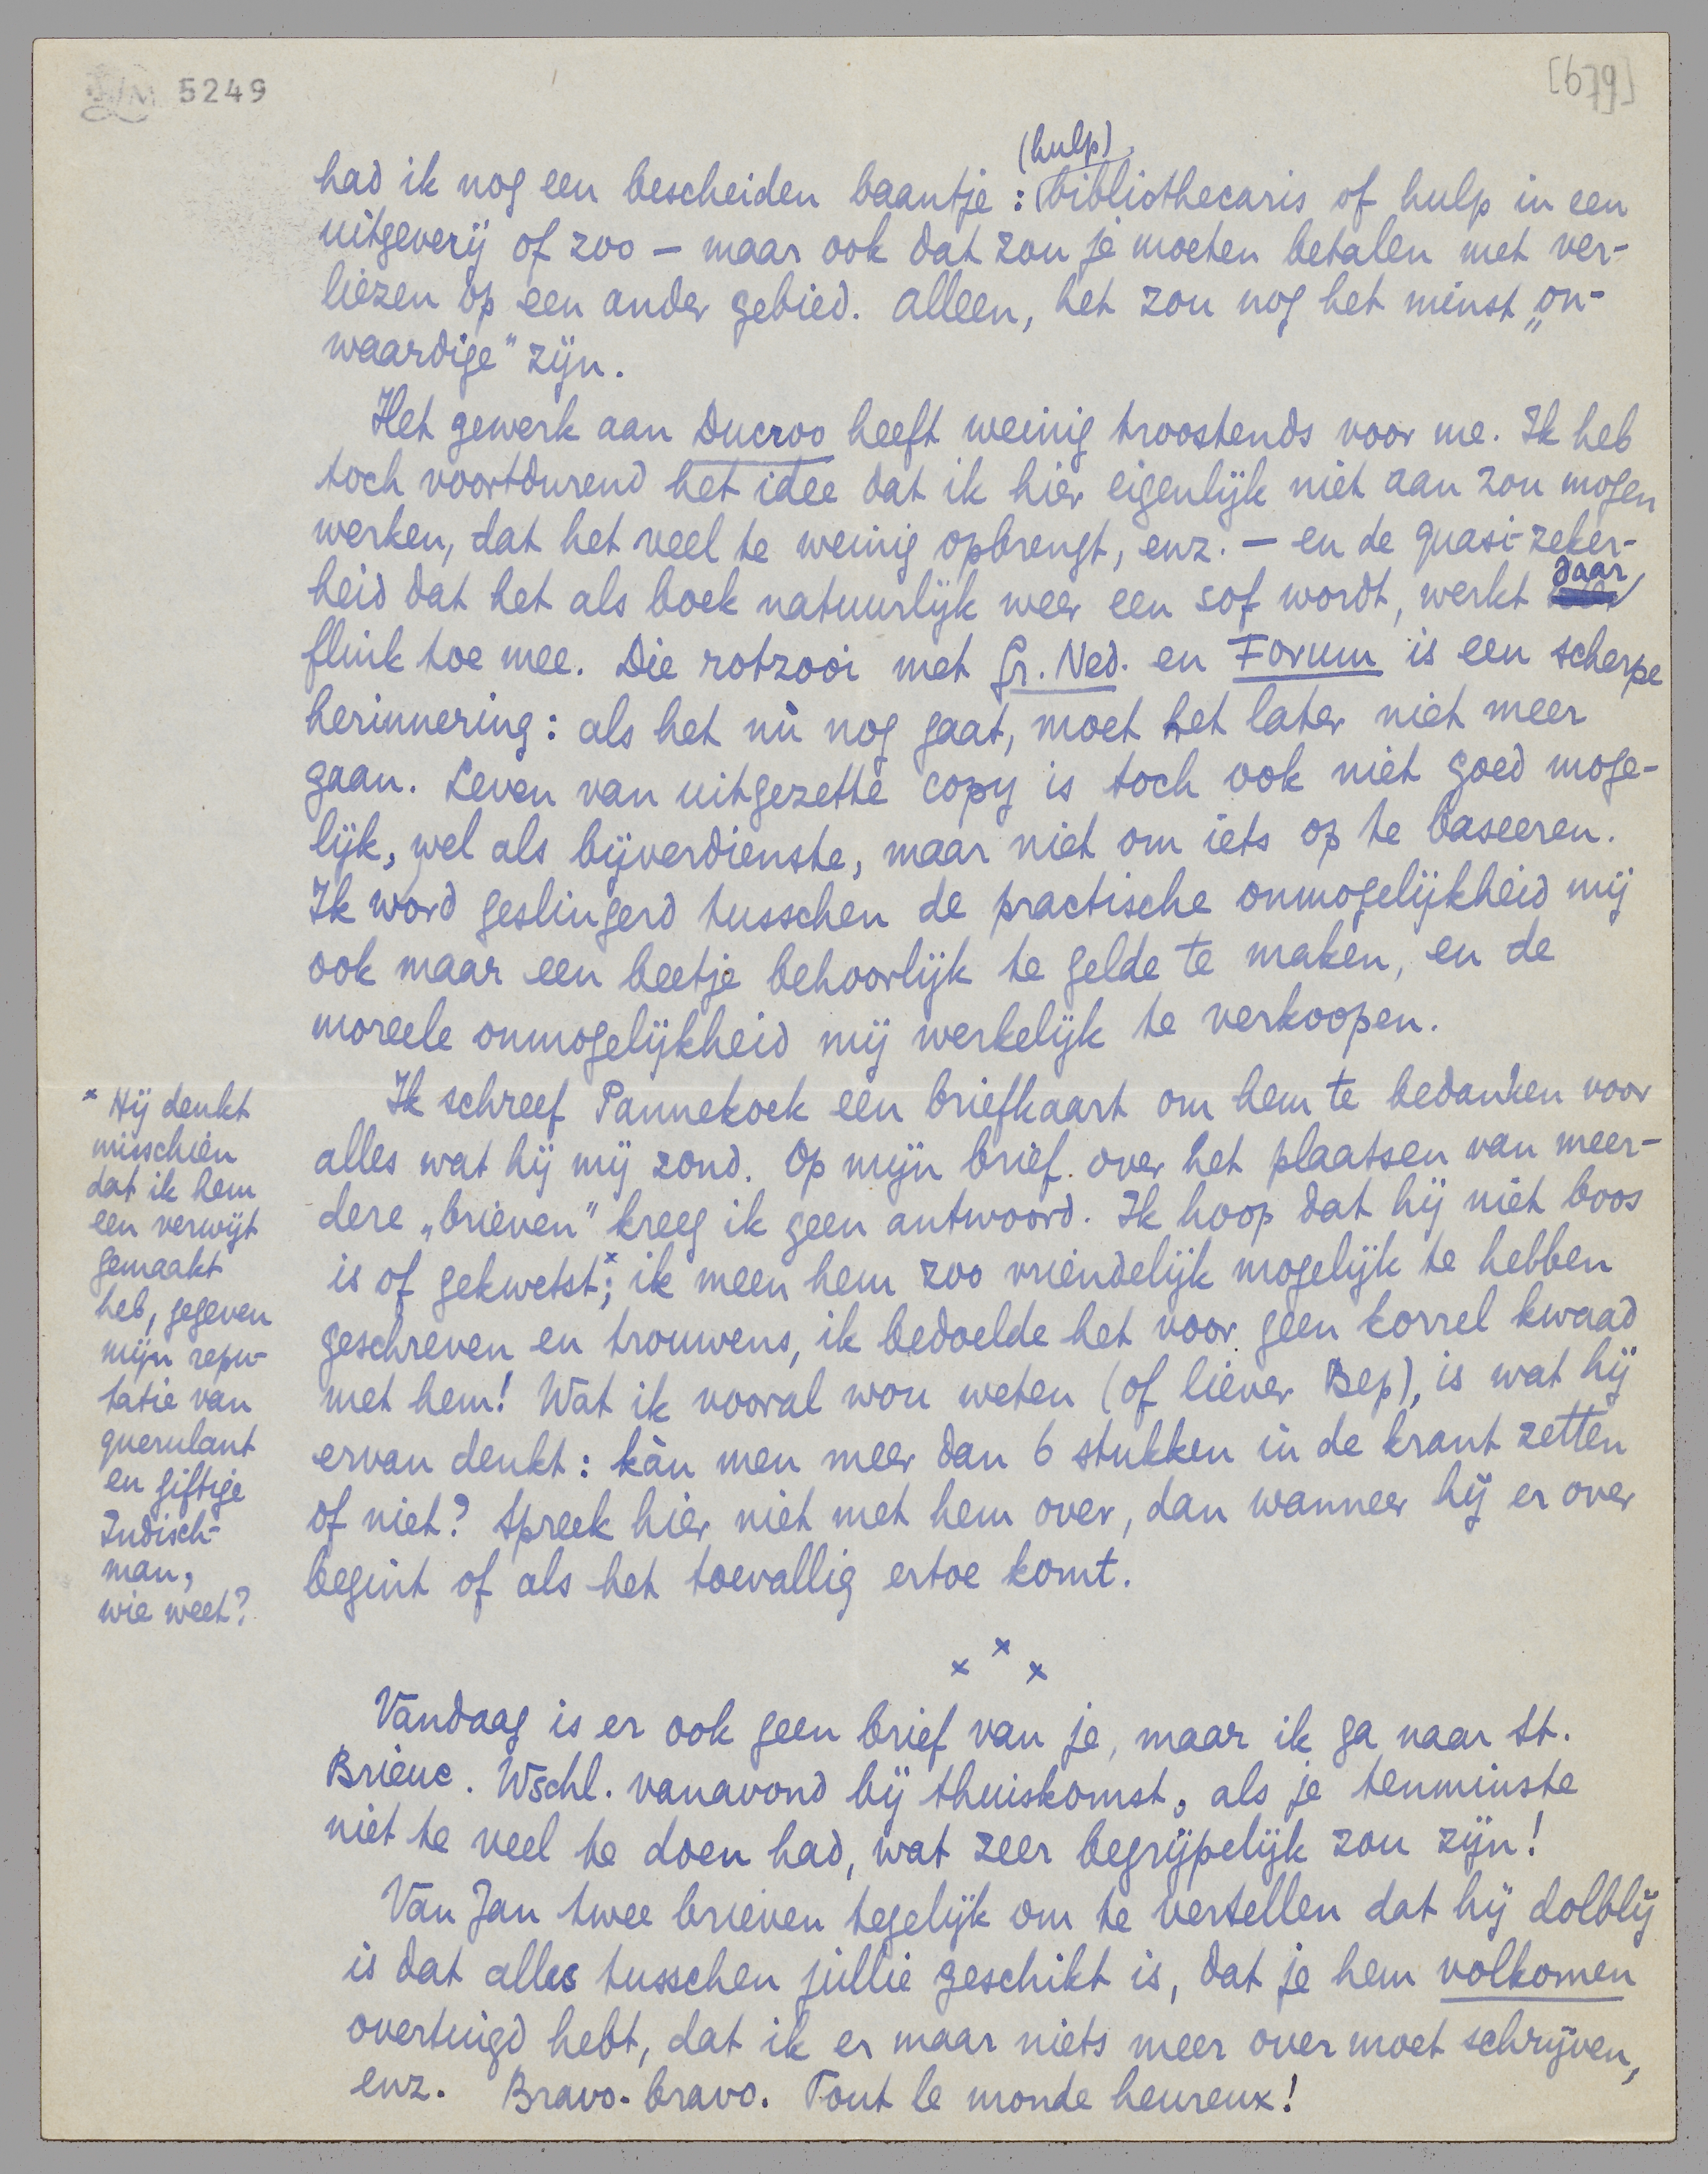 LM 5249
[679]
had ik nog een bescheiden baantje: (hulp)bibliothecaris of hulp in een
uitgeverij of zoo — maar ook dat zou je moeten betalen met ver-
liezen op een ander gebied. Alleen, het zou nog het minst „on-
waardige” zijn.
Het gewerk aan Ducroo heeft weinig troostends voor me. Ik heb
toch voortdurend het idee dat ik hier eigenlijk niet aan zou mogen
werken, dat het veel te weinig opbrengt, enz. — en de quasi-zeker-
heid dat het als boek natuurlijk weer een sof wordt, werkt daar
flink toe mee. Die rotzooi met Gr. Ned. en Forum is een scherpe
herinnering: als het nù nog gaat, moet het later niet meer
gaan. Leven van uitgezette copy is toch ook niet goed moge-
lijk, wel als bijverdienste, maar niet om iets op te baseeren.
Ik word geslingerd tusschen de practische onmogelijkheid mij
ook maar een beetje behoorlijk te gelde te maken, en de
moreele onmogelijkheid mij werkelijk te verkoopen.
Ik schreef Pannekoek een briefkaart om hem te bedanken voor
alles wat hij mij zond. Op mijn brief over het plaatsen van meer-
dere „brieven” kreeg ik geen antwoord. Ik hoop dat hij niet boos
is of gekwetst*; ik meen hem zoo vriendelijk mogelijk te hebben
geschreven en trouwens, ik bedoelde het voor geen korrel kwaad
met hem! Wat ik vooral wou weten (of liever Bep), is wat hij
ervan denkt: kàn men meer dan 6 stukken in de krant zetten
of niet? Spreek hier niet met hem over, dan wanneer hij er over
begint of als het toevallig ertoe komt.
* Hij denkt
misschien
dat ik hem
een verwijt
gemaakt
heb, gegeven
mijn repu-
tatie van
querulant
en giftige
Indisch-
man,
wie weet?
x x x
Vandaag is er ook geen brief van je, maar ik ga naar St.
Brieuc. Wschl. vanavond bij thuiskomst, als je tenminste
niet te veel te doen had, wat zeer begrijpelijk zou zijn!
Van Jan twee brieven tegelijk om te vertellen dat hij dolblij
is dat alles tusschen jullie geschikt is, dat je hem volkomen
overtuigd hebt, dat ik er maar niets meer over moet schrijven,
enz. Bravo-bravo. Tout le monde heureux!